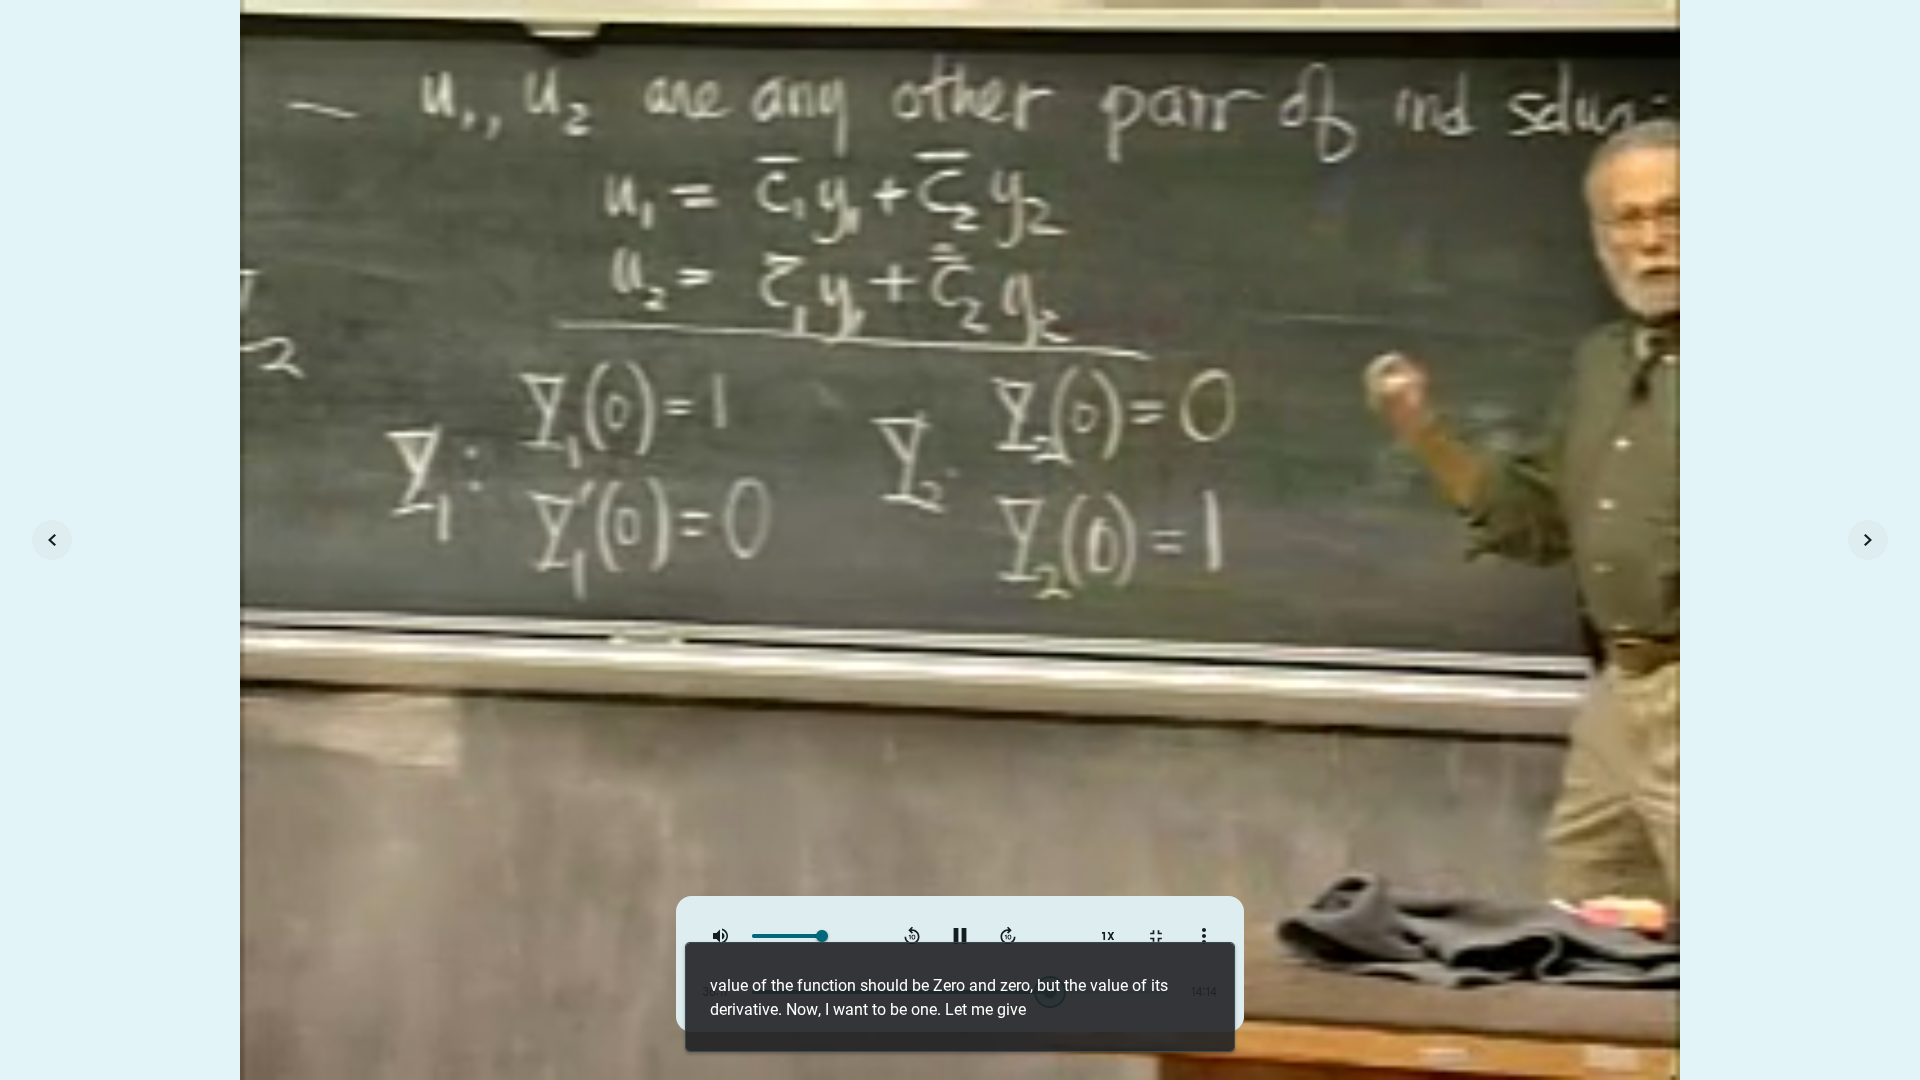 — u₁, u₂ are any other pair of ind solu
u₁ = c̄₁y₁ + c̄₂y₂
u₂ = c̿₁y₁ + c̿₂y₂
2
Y₁: Y₁(0)=1 Y₂: Y₂(0)=0
Y₁'(0)=0 Y₂(0)=1
1X
14:14
value of the function should be Zero and zero, but the value of its
derivative. Now, I want to be one. Let me give